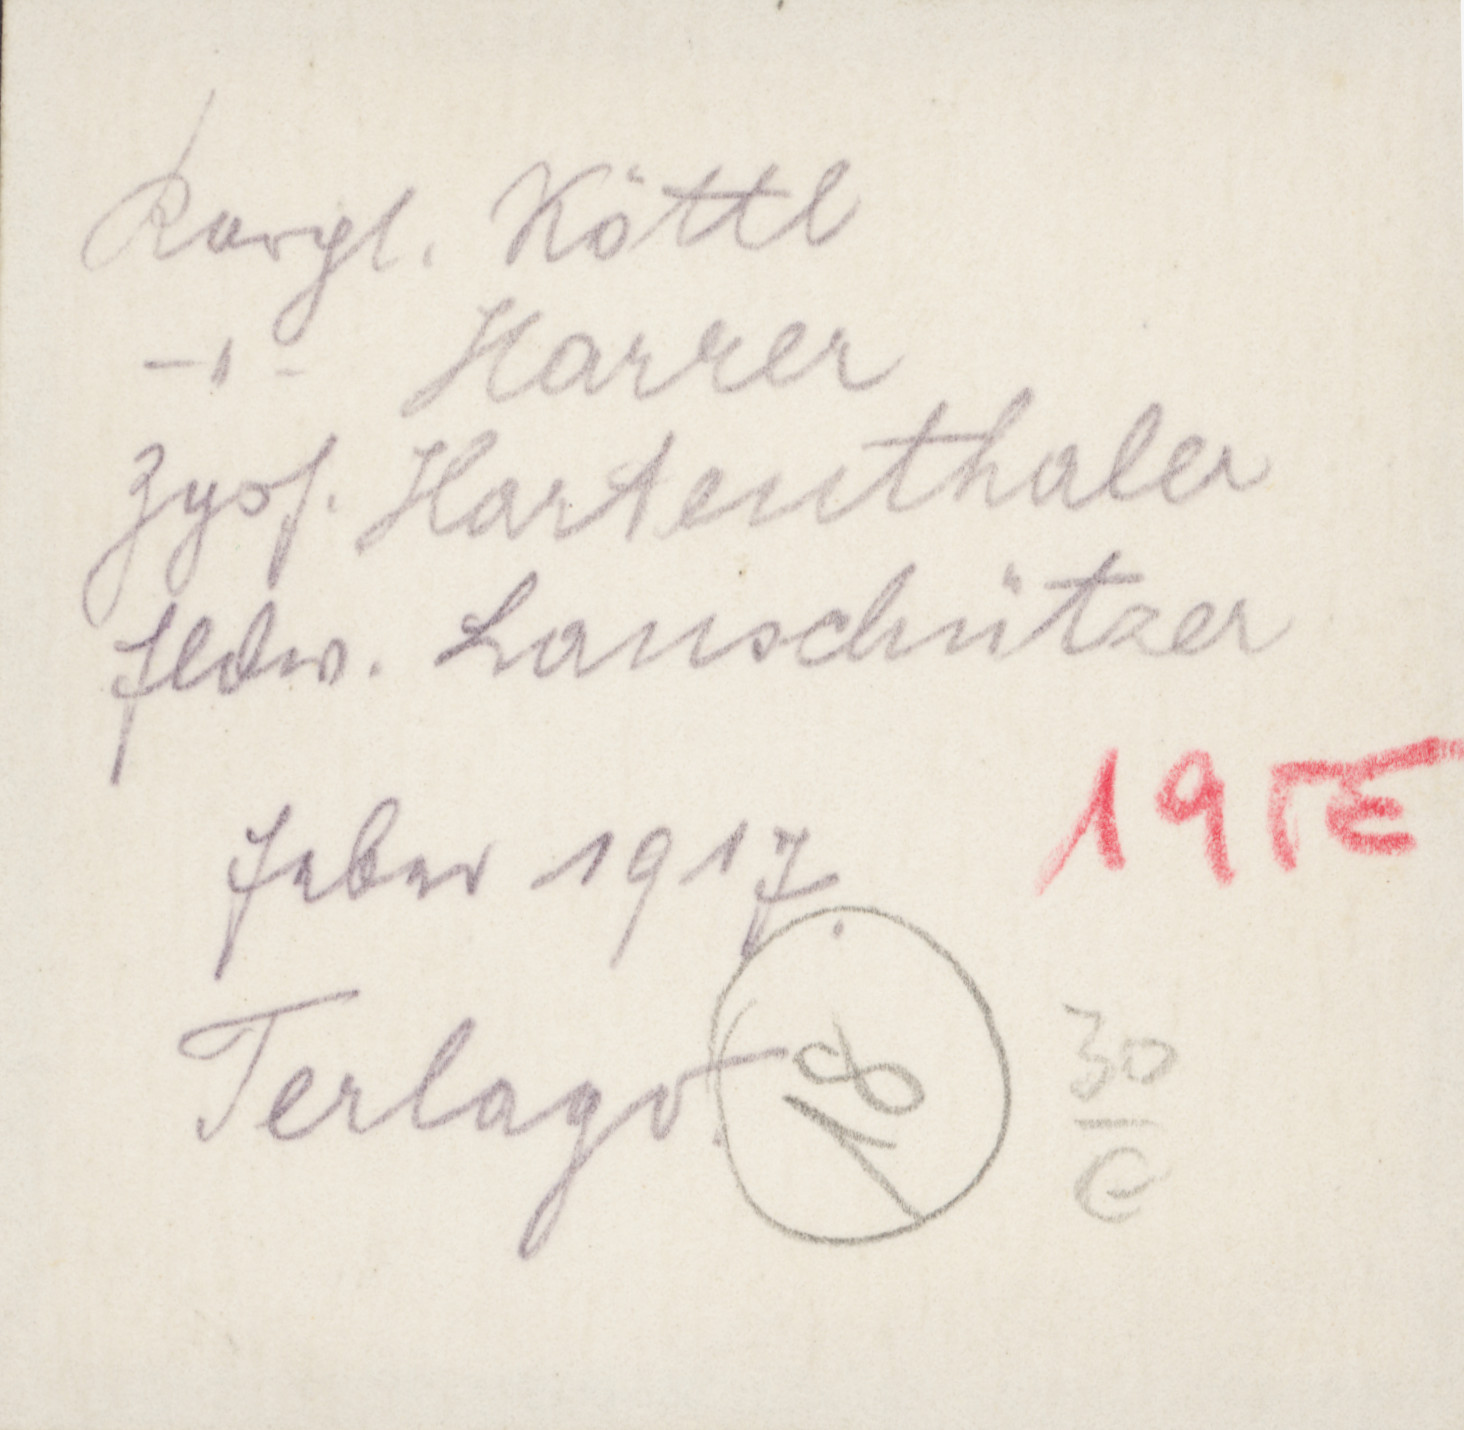 Köttl
-"- Harrer
Zgsf. Hartenthaler
Feldw. Lanschützer
19
Feber 1917.
Terlago.
18
30